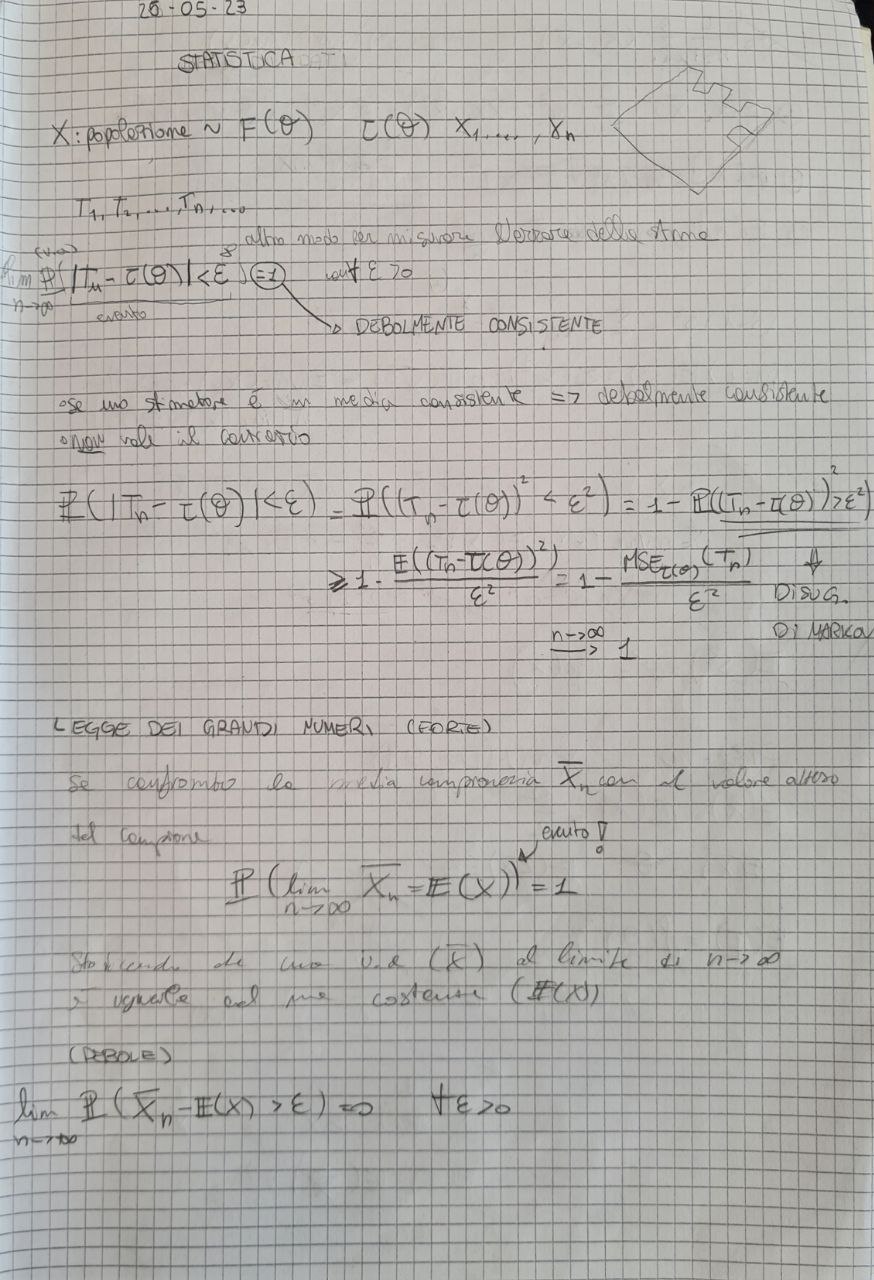 26-05-23
STATISTICA
X: popolazione ~ F(θ) τ(θ) X₁,...., Xₙ
T₁, T₂, ..., Tₙ, ...
altro modo per misurare l'errore delle stime
lim ℙ(|Tₙ - τ(θ)| < ε) = 1 ∀ ε > 0
n->∞
evento
DEBOLMENTE CONSISTENTE
•se uno stimatore è in media consistente => debolmente consistente
•NON vale il contrario
ℙ(|Tₙ - τ(θ)| < ε) = ℙ((Tₙ - τ(θ))² < ε²) = 1 - ℙ((Tₙ - τ(θ))² > ε²)
≥ 1 - 𝔼((Tₙ - τ(θ))²)/ε² = 1 - MSE_τ(θ)(Tₙ)/ε² ↓
DISUG.
n->∞ → 1 DI MARKOV
LEGGE DEI GRANDI NUMERI (FORTE)
Se confronto la media campionaria X̅ₙ con il valore atteso
del campione
evento!
ℙ(lim X̅ₙ = 𝔼(X)) = 1
n->∞
Sto dicendo che una v.a (X̅) al limite di n->∞
è uguale ad una costante (𝔼(X))
(DEBOLE)
lim ℙ(X̅ₙ - 𝔼(X) > ε) = 0 ∀ ε > 0
n->+∞